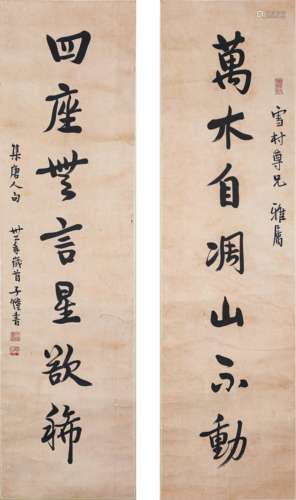 雪村尊兄 雅属
萬木自凋山不動
四座無言星欲稀
集唐人句
卅二年歲首 子愷書